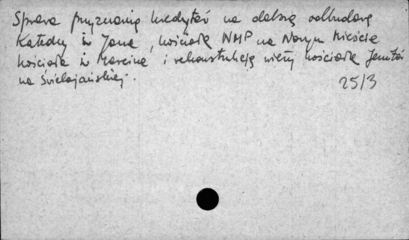 Sprawa przyznania kredytów na dalszą odbudowę
Katedry św Jana, kościoła NMP na Nowym Mieście
kościoła św Marcina i rekonstrukcję wieży kościoła Jezuitów
na Świętojańskiej.
25/3